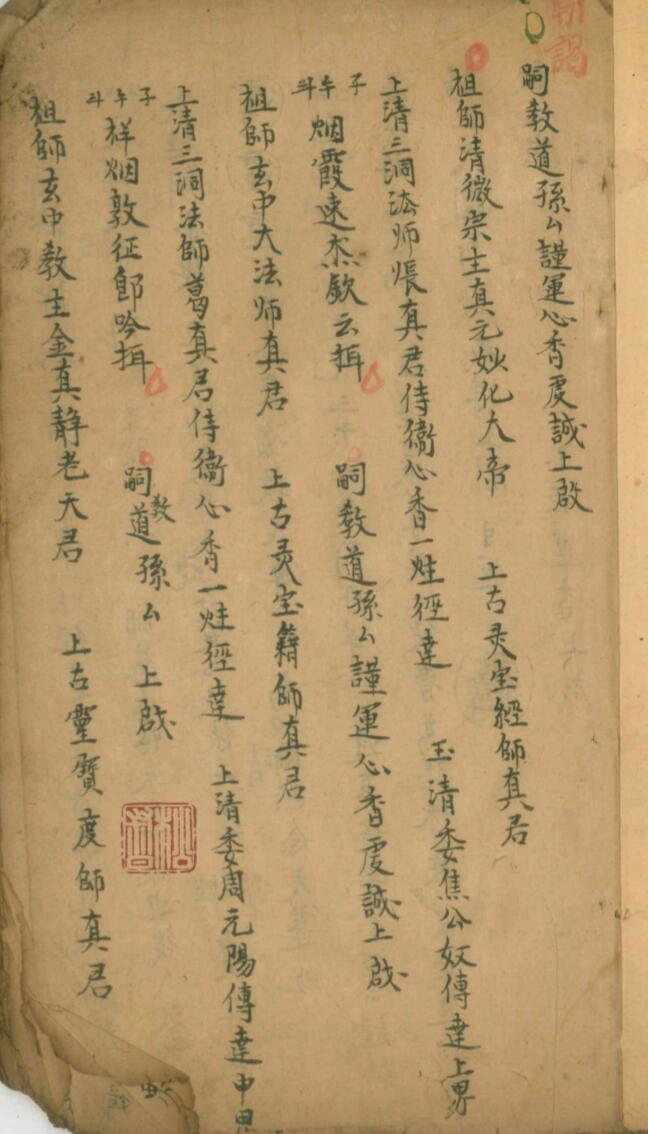 朝謁
嗣教道孫厶謹運心香虔誠上啟
祖師清微宗主真元妙化大帝 上古灵宝經師真君
上清三洞法师張真君侍衞心香一炷徑達 玉清委焦公奴傳達上界
子午斗 烟霞遠杰欽云揖 嗣教道孫厶謹運心香虔誠上啟
祖師玄中大法师真君 上古灵宝籍師真君
上清三洞法師葛真君侍衞心香一炷徑達 上清委周元陽傳達中界
子午斗 祥烟敦征郎吟揖 嗣教道孫厶上啟
祖師玄中教主金真靜老天君 上古靈寶度師真君